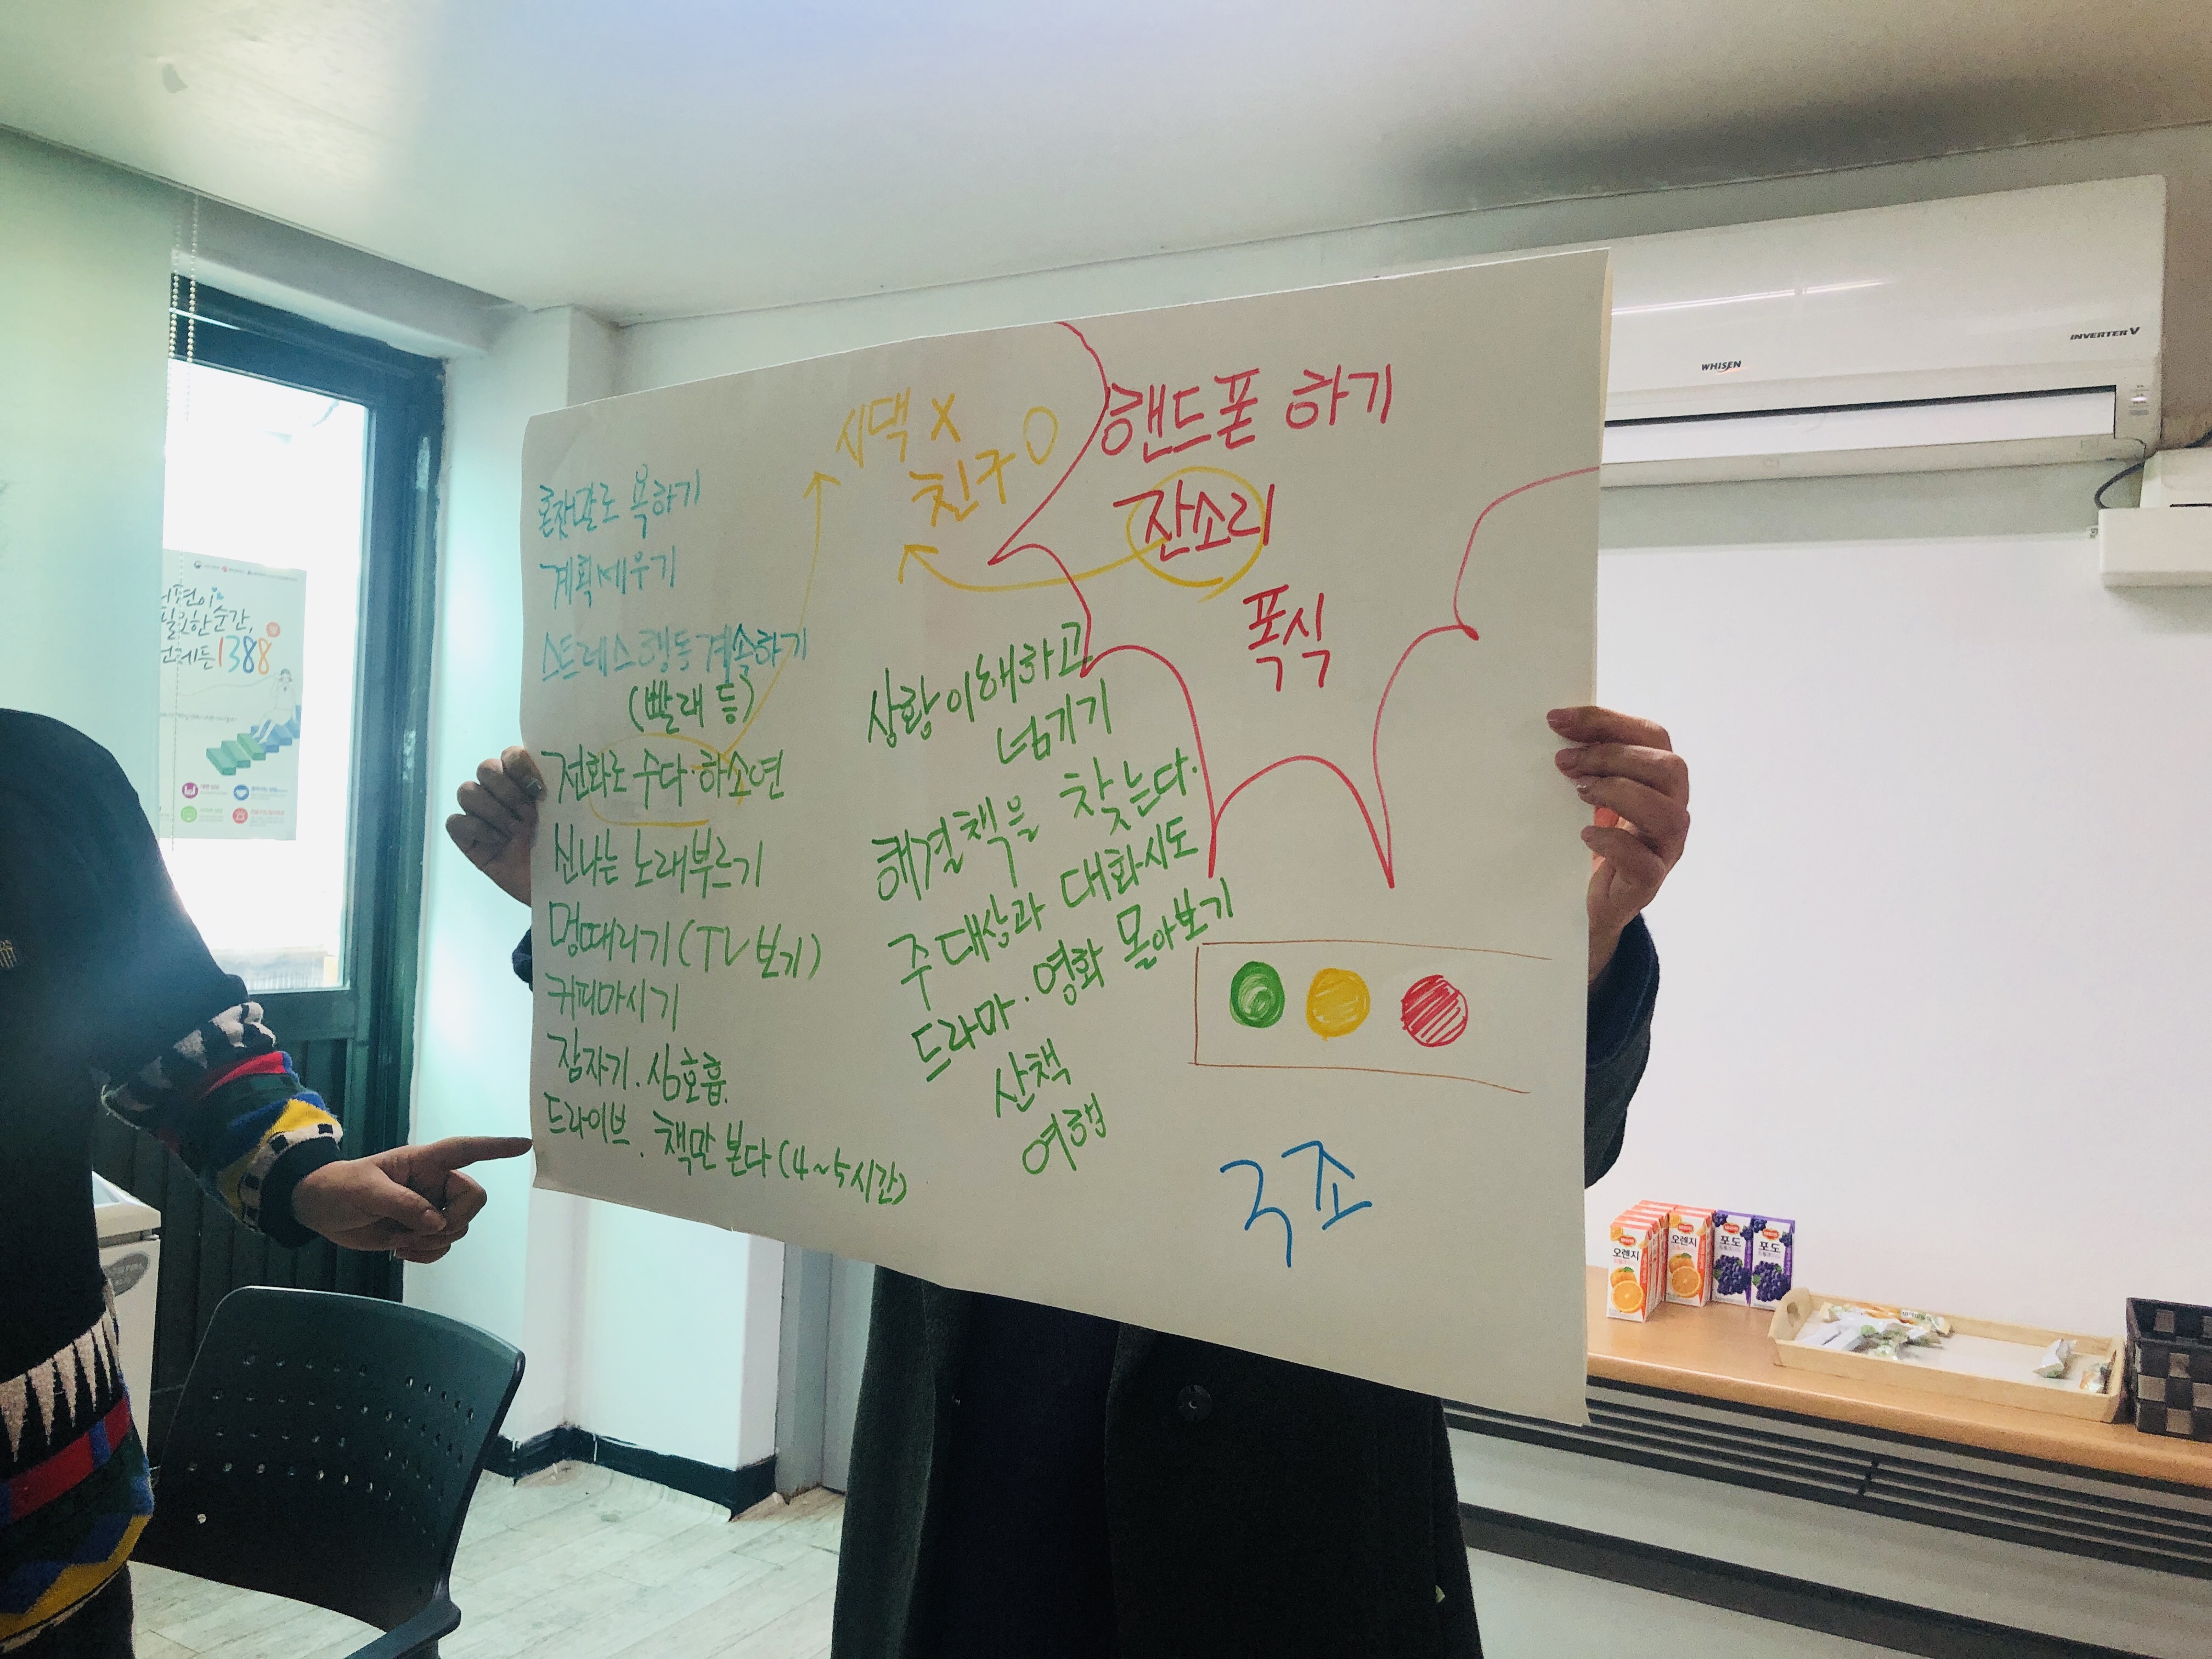 시댁 X
친구 O
핸드폰 하기
잔소리
폭식
혼잣말로 욕하기
계획세우기
스트레스 행동 계속하기
(빨래 등)
전화로 수다·하소연
신나는 노래부르기
멍때리기 (TV 보기)
커피마시기
잠자기. 심호흡.
드라이브. 책만 본다 (4~5시간)
상황 이해하고
넘기기
해결책을 찾는다.
주 대상과 대화시도
드라마·영화 몰아보기
산책
여행
구조
필요한 순간,
언제든 1388
WHISEN
INVERTER V
오렌지
오렌지
포도
포도